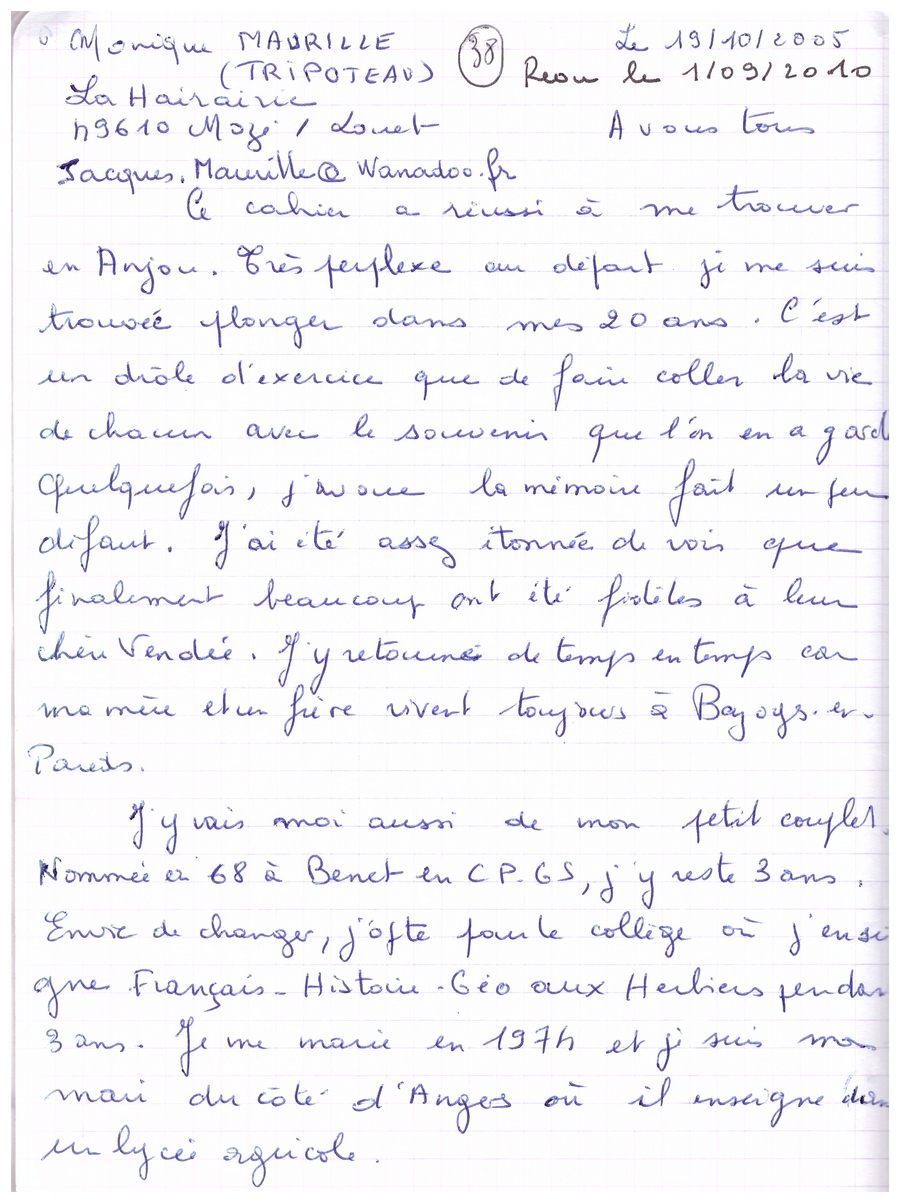 Monique MAURILLE (38) Le 19/10/2005
(TRIPOTEAU) Reçu le 1/09/2010
La Hairairie
49610 Mozé / Louet A vous tous
Jacques.Maurille@Wanadoo.fr
Ce cahier a réussi à me trouver
en Anjou. Très perplexe au départ je me suis
trouvée plonger dans mes 20 ans. C'est
un drôle d'exercice que de faire coller la vie
de chacun avec le souvenir que l'on en a gard
Quelquefois, j'avoue la mémoire fait un peu
défaut. J'ai été assez étonnée de voir que
finalement beaucoup ont été fidèles à leur
chère Vendée. J'y retourne de temps en temps car
ma mère et un frère vivent toujours à Bazoges-en-
Pareds.
J'y vais moi aussi de mon petit couplet.
Nommée en 68 à Benet en CP-GS, j'y reste 3 ans.
Envie de changer, j'opte pour le collège où j'ensei
gne Français - Histoire - Géo aux Herbiers pendan
3 ans. Je me marie en 1974 et je suis mon
mari du côté d'Angers où il enseigne dans
un lycée agricole.